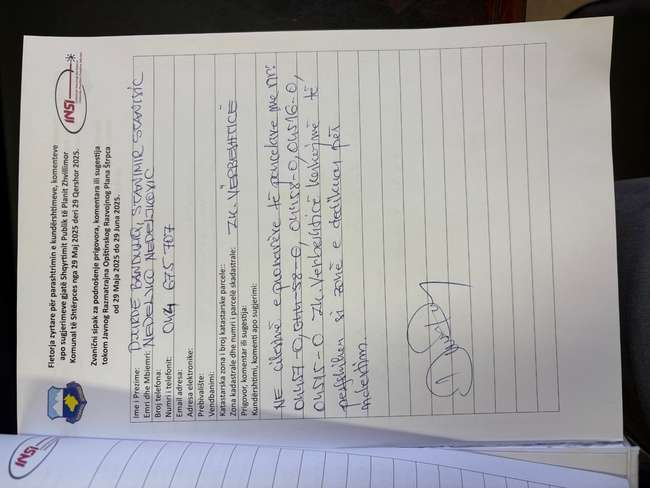 INSI
Fletorja zyrtare për parashtrimin e kundërshtimeve, komenteve
apo sugjerimeve gjatë Shqyrtimit Publik të Planit Zhvillimor
Komunal të Shtërpces nga 29 Maj 2025 deri 29 Qershor 2025.
Zvanični sipak za podnošenje prigovora, komentara ili sugestija
tokom Javnog Razmatrajna Opštinskog Razvojnog Plana Štrpca
od 29 Maja 2025 do 29 Juna 2025.
Ime i Prezime: STANIMIR
Emri dhe Mbiemri: NEDELJKO NEDELJKOVIC
Broj telefona:
Numri i telefonit: 675 707
Email adresa:
Adresa elektronike:
Prebivalište:
Vendbanimi:
Katastarska zona i broj katastarske parcele::
Zona kadastrale dhe numri i parcelë skadastrale: ZK-VËRBESHTICË
Prigovor, komentar ili sugestija:
Kundërshtimi, komenti apo sugjerimi:
NE cilësinë e pronarëve të parcelave me nr:
04458-0, 04516-0,
04515-0 ZK-Verbeshticë kerkojmë të
si zonë e dedikuar për
ndertim.
INSI